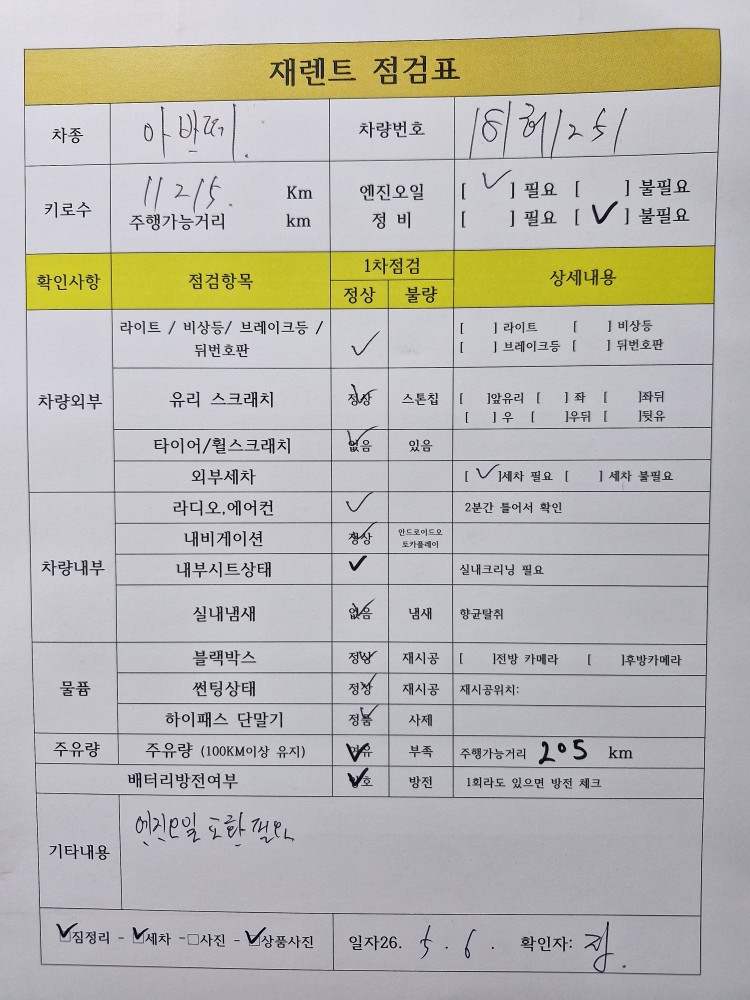 재렌트 점검표
차종 아반떼. 차량번호 181허1251
키로수 11215. Km 엔진오일 [ ✓ ] 필요 [ ] 불필요
주행가능거리 km 정 비 [ ] 필요 [ ✓ ] 불필요
확인사항 점검항목 1차점검 상세내용
정상 불량
차량외부 라이트 / 비상등/ 브레이크등 / ✓ [ ] 라이트 [ ] 비상등
뒤번호판 [ ] 브레이크등 [ ] 뒤번호판
유리 스크래치 정상 ✓ 스톤칩 [ ]앞유리 [ ] 좌 [ ]좌뒤
[ ] 우 [ ]우뒤 [ ]뒷유
타이어/휠스크래치 없음 ✓ 있음
외부세차 [ ✓ ]세차 필요 [ ] 세차 불필요
차량내부 라디오,에어컨 ✓ 2분간 틀어서 확인
내비게이션 정상 ✓ 안드로이드오
토카플레이
내부시트상태 ✓ 실내크리닝 필요
실내냄새 없음 ✓ 냄새 향균탈취
물품 블랙박스 정상 ✓ 재시공 [ ]전방 카메라 [ ]후방카메라
썬팅상태 정상 ✓ 재시공 재시공위치:
하이패스 단말기 정품 ✓ 사제
주유량 주유량 (100KM이상 유지) ✓ 부족 주행가능거리 205 km
배터리방전여부 양호 ✓ 방전 1회라도 있으면 방전 체크
기타내용 엔진오일 교환 필요
☑짐정리 - ☑세차 -□사진 - ☑상품사진 일자26. 5 . 6 . 확인자: